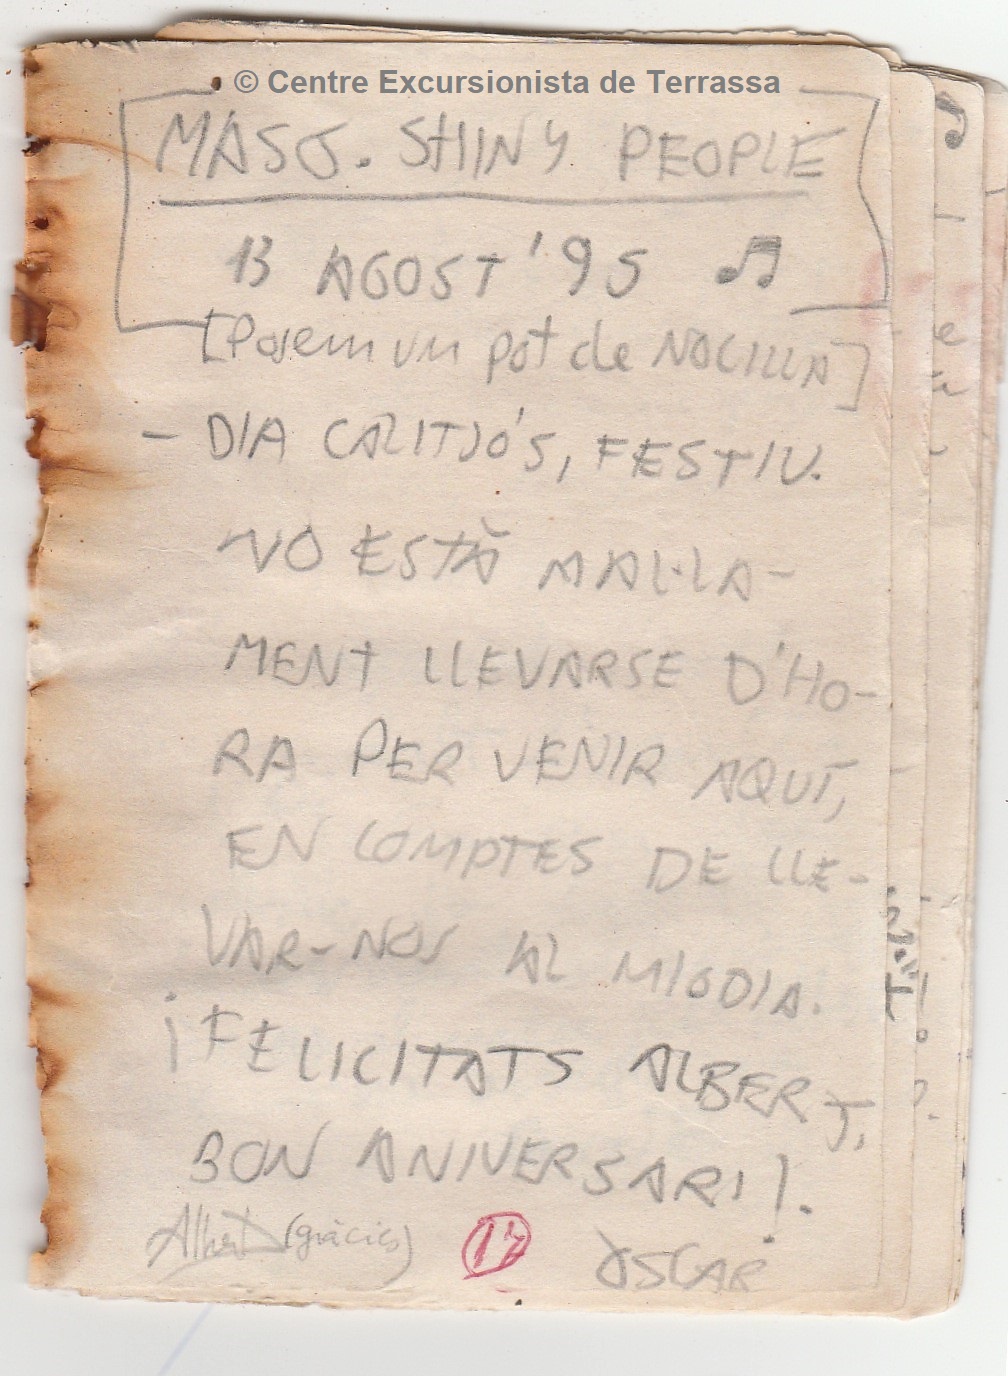 © Centre Excursionista de Terrassa
MASO. SHINY PEOPLE
13 AGOST '95 ♫
[Posem un pot de NOCILLA]
- DIA CALITJÓS, FESTIU.
NO ESTÀ MAL·LA-
MENT LLEVARSE D'HO-
RA PER VENIR AQUÍ,
EN COMPTES DE LLE-
VAR-NOS AL MIGDIA.
¡FELICITATS ALBERT,
BON ANIVERSARI!.
Albert (gràcies)
17
OSCAR